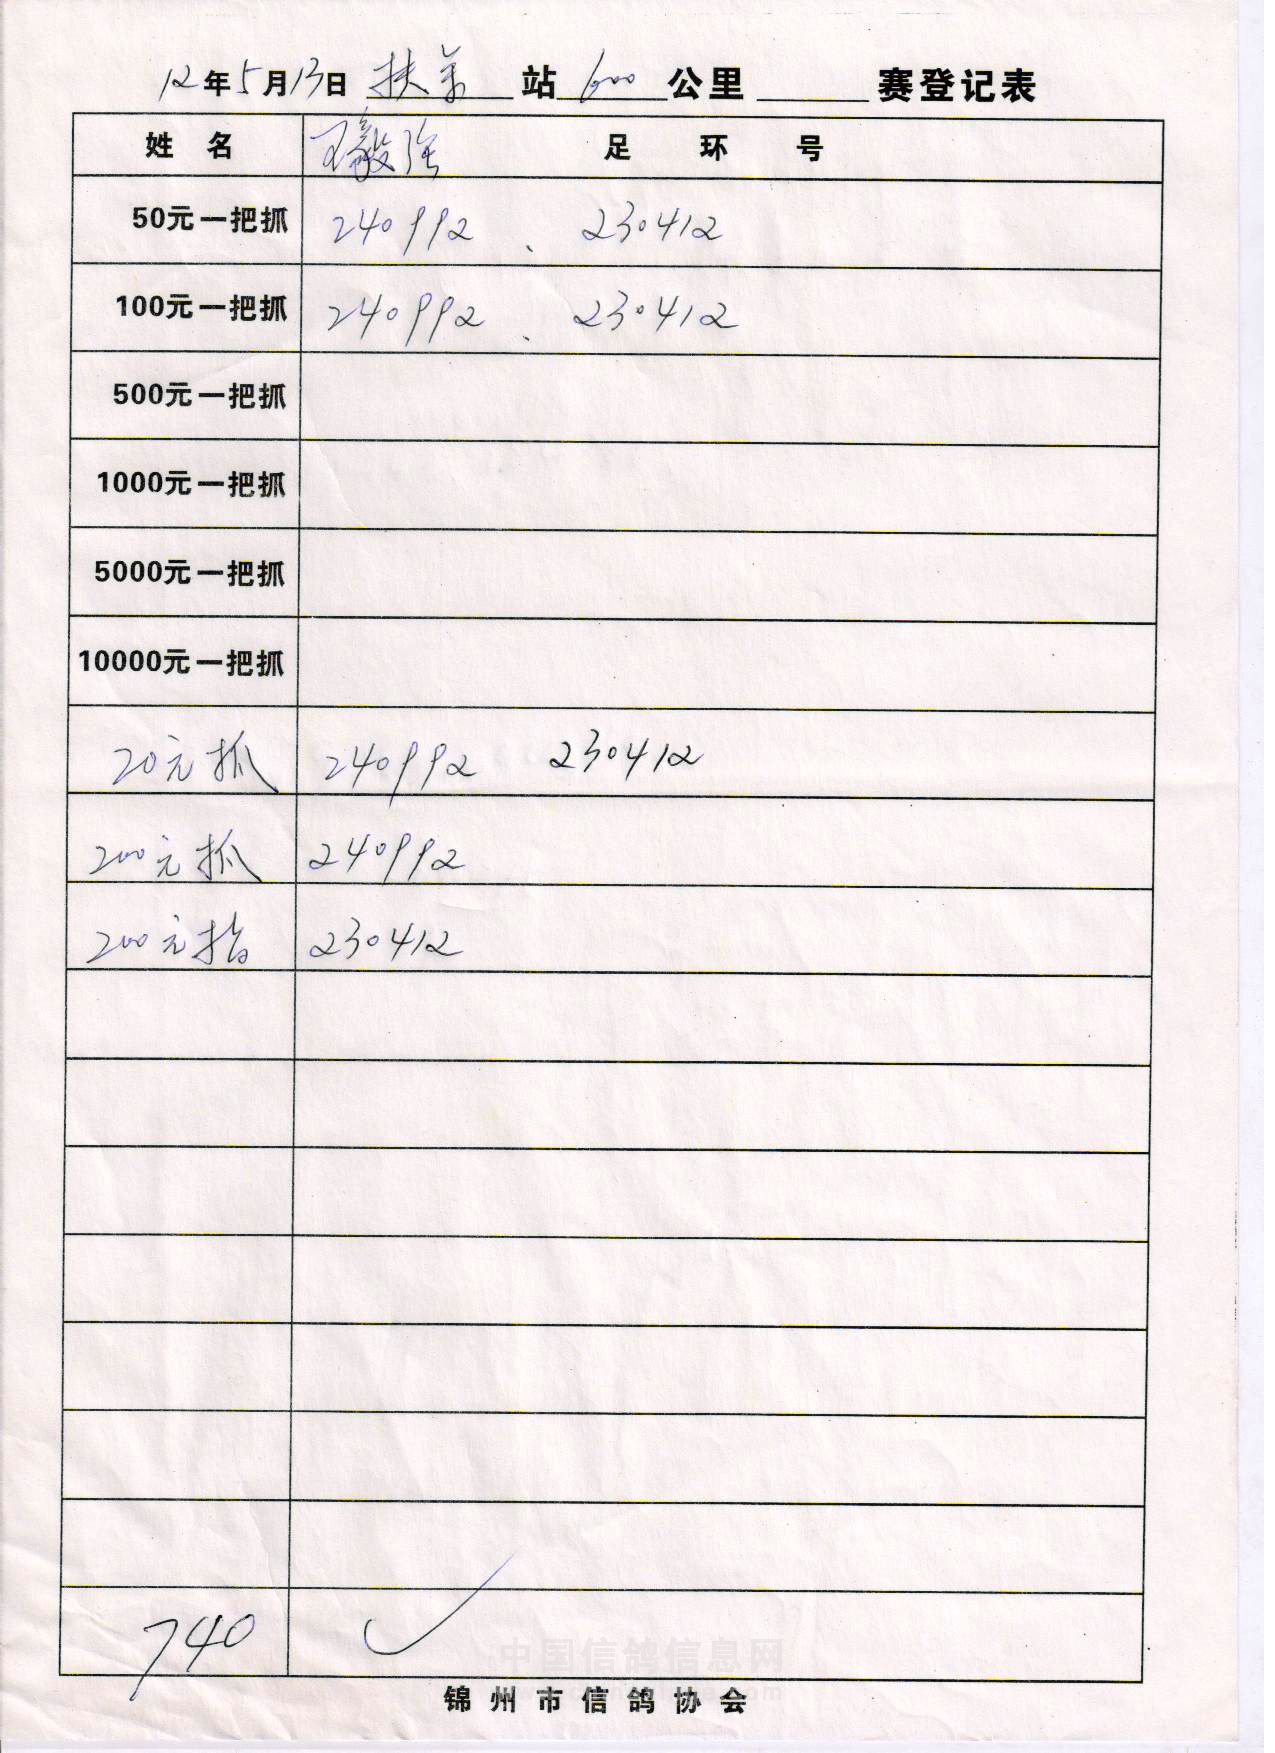 12年5月13日 扶余 站 600 公里 赛登记表
姓 名 王毅强 足 环 号
50元一把抓 240992 、 230412
100元一把抓 240992 、 230412
500元一把抓
1000元一把抓
5000元一把抓
10000元一把抓
20元抓 240992 230412
200元抓 240992
200元指 230412
740 ✓
中国信鸽信息网
锦州市信鸽协会